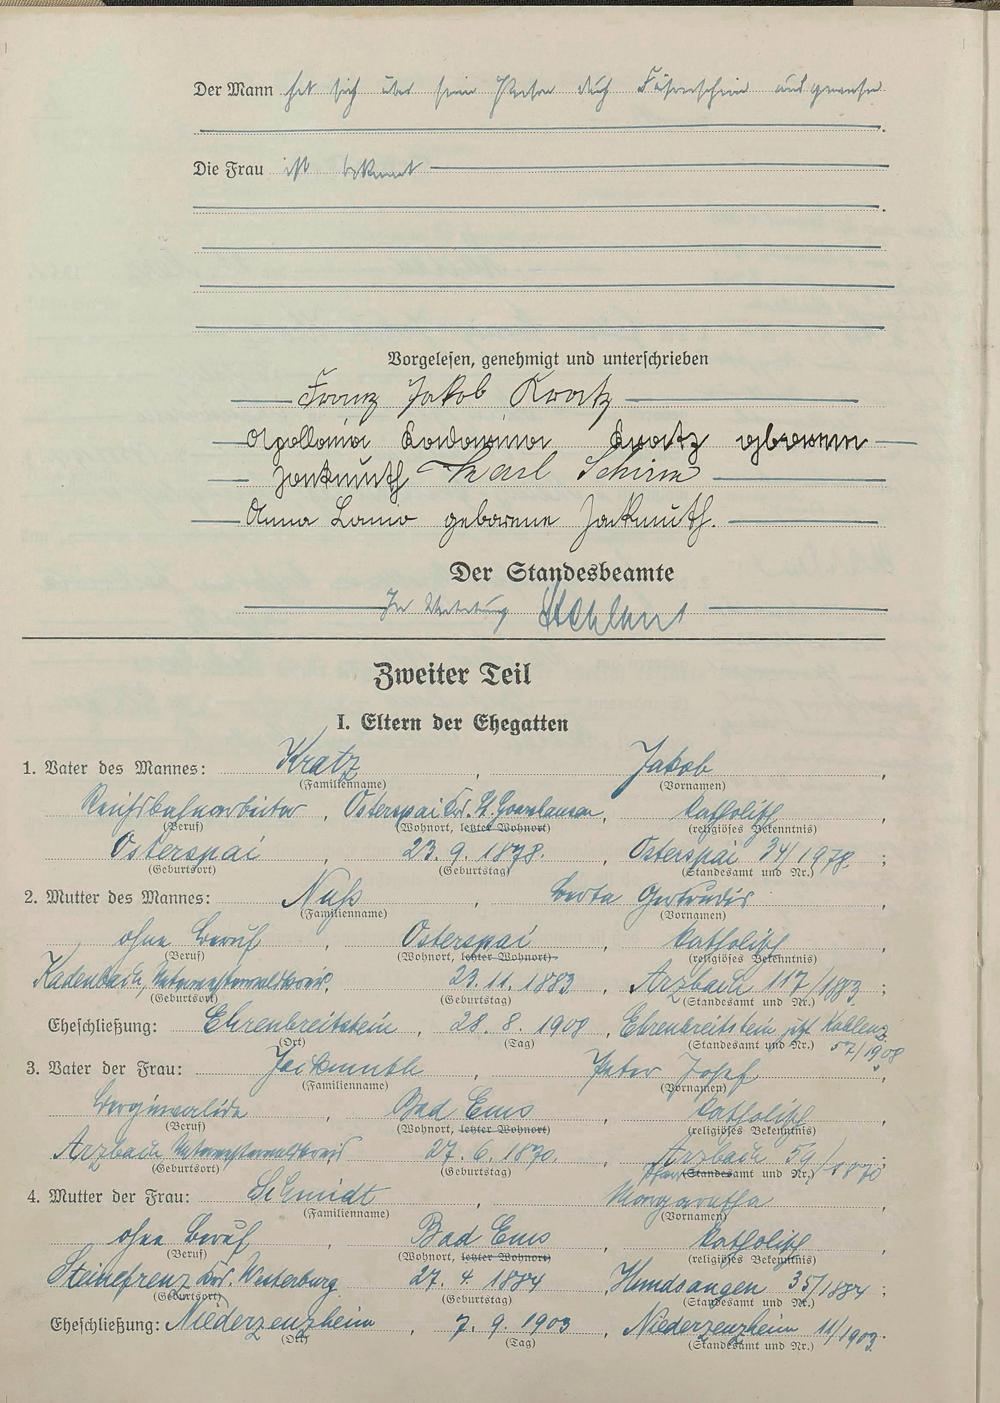 Der Mann hat sich über seine Person durch Führerschein ausgewiesen
Die Frau ist bekannt
Vorgelesen, genehmigt und unterschrieben
Franz Jakob Kratz
Apollonia Katharina Kratz geborenen
Jackmuth Karl Schirm
Anna Lanio geborene Jackmuth.
Der Standesbeamte
In Vertretung
Zweiter Teil
I. Eltern der Ehegatten
1. Vater des Mannes: Kratz, Jakob,
(Familienname) (Vornamen)
Reichsbahnarbeiter, Osterspai Krs. St. Goarshausen, katholisch,
(Beruf) (Wohnort, letzter Wohnort) (religiöses Bekenntnis)
Osterspai, 23. 9. 1878., Osterspai 34/1978.;
(Geburtsort) (Geburtstag) (Standesamt und Nr.)
2. Mutter des Mannes: Nuß, Berta Gertrudis,
(Familienname) (Vornamen)
ohne Beruf, Osterspai, katholisch,
(Beruf) (Wohnort, letzter Wohnort) (religiöses Bekenntnis)
Kadenbach, Unterwesterwaldkreis, 23. 11. 1883, Arzbach 117/1883;
(Geburtsort) (Geburtstag) (Standesamt und Nr.)
Eheschließung: Ehrenbreitstein, 28. 8. 1908, Ehrenbreitstein jetzt Koblenz
(Ort) (Tag) (Standesamt und Nr.) 57/1908,
3. Vater der Frau: Jackmuth, Peter Josef,
(Familienname) (Vornamen)
Berginvalide, Bad Ems, katholisch,
(Beruf) (Wohnort, letzter Wohnort) (religiöses Bekenntnis)
Arzbach Unterwesterwaldkreis, 27. 6. 1870., Arzbach 59/1870;
(Geburtsort) (Geburtstag) (Pfarr Standesamt und Nr.)
4. Mutter der Frau: Schmidt, Margaretha,
(Familienname) (Vornamen)
ohne Beruf, Bad Ems, katholisch,
(Beruf) (Wohnort, letzter Wohnort) (religiöses Bekenntnis)
Steinefrenz Krs. Westerburg, 27. 4. 1884, Hundsangen 35/1884;
(Geburtsort) (Geburtstag) (Standesamt und Nr.)
Eheschließung: Niederzeuzheim, 7. 9. 1903, Niederzeuzheim 11/1903.
(Ort) (Tag) (Standesamt und Nr.)